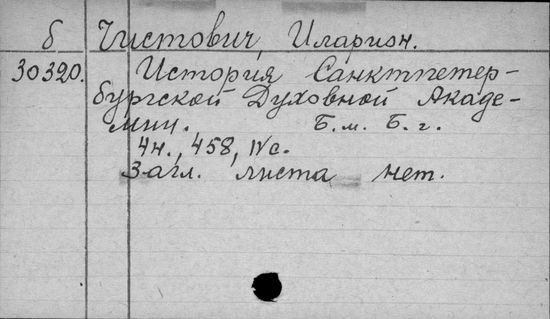 б Чистович, Иларион.
30320. История Санктпетер-
бургской Духовной Акаде-
мии. Б. м. Б. г.
4н., 458, IVс.
Загл. листа нет.